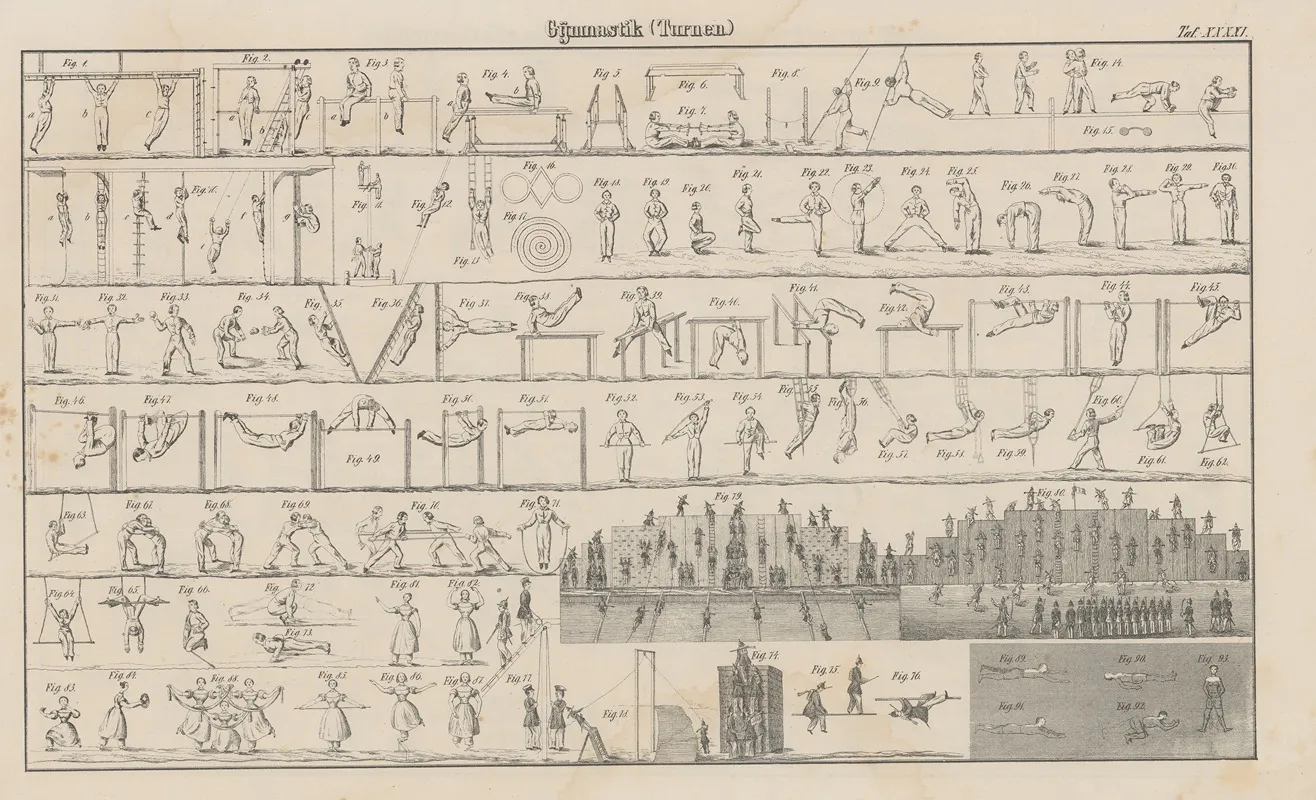 Gymnastik (Turnen)
Taf. XXXXI.
Fig. 1.
Fig. 2.
Fig. 3
Fig. 4.
Fig. 5
Fig. 6.
Fig. 7.
Fig. 8.
Fig. 9.
Fig. 14.
Fig. 15.
a
b
c
a
b
a
b
a
b
Fig. 10.
Fig. 11.
Fig. 12.
Fig. 13
Fig. 16.
Fig. 17.
Fig. 18.
Fig. 19.
Fig. 20.
Fig. 21.
Fig. 22.
Fig. 23.
Fig. 24.
Fig. 25.
Fig. 26.
Fig. 27.
Fig. 28.
Fig. 29.
Fig. 30.
a
b
c
d
e
f
g
Fig. 31.
Fig. 32.
Fig. 33.
Fig. 34.
Fig. 35
Fig. 36.
Fig. 37.
Fig. 38.
Fig. 39.
Fig. 40.
Fig. 41.
Fig. 42.
Fig. 43.
Fig. 44.
Fig. 45.
Fig. 46.
Fig. 47.
Fig. 48.
Fig. 49.
Fig. 50.
Fig. 51.
Fig. 52.
Fig. 53.
Fig. 54.
Fig. 55.
Fig. 56.
Fig. 57.
Fig. 58.
Fig. 59.
Fig. 60.
Fig. 61.
Fig. 62.
Fig. 63.
Fig. 67.
Fig. 68.
Fig. 69.
Fig. 70.
Fig. 71.
Fig. 79.
Fig. 80.
Fig. 64.
Fig. 65.
Fig. 66.
Fig. 72
Fig. 73.
Fig. 81.
Fig. 82.
Fig. 83.
Fig. 84.
Fig. 88.
Fig. 85.
Fig. 86.
Fig. 87.
Fig. 77.
Fig. 78.
Fig. 74.
Fig. 75.
Fig. 76.
Fig. 89.
Fig. 90.
Fig. 91.
Fig. 92.
Fig. 93.